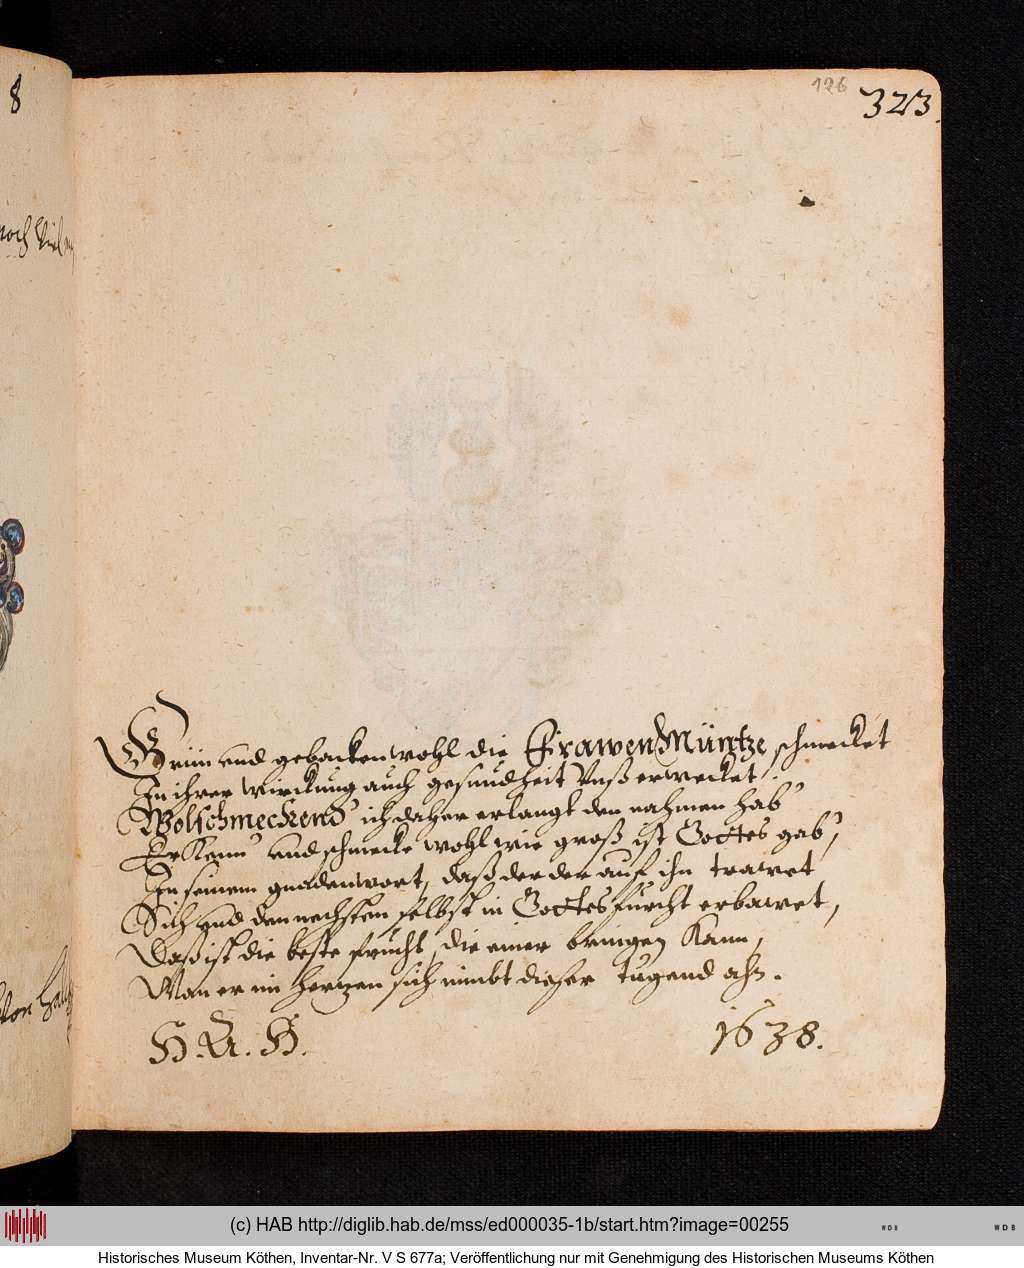 8
126
323.
noch Viel
Grün und gebacken wohl die FrawenMüntze schmecket
In ihrer wirckung auch gesundheit Unß erwecket.
Wolschmeckend ich daher erlangt den nahmen hab
Er Kenn und schmecke wohl wie groß ist Gottes gab,
In seinem gnadenwort, daß der der auf ihn trawet
Sich und den nechsten selbst in Gottesfurcht erbawet,
Daß ist die beste frucht, die einer bringen Kann,
Wan er im hertzen sich nimbt dieser tugend ahn.
H. A. H. 1638.
Von
(c) HAB http://diglib.hab.de/mss/ed000035-1b/start.htm?image=00255
WDB
WDB
Historisches Museum Köthen, Inventar-Nr. V S 677a; Veröffentlichung nur mit Genehmigung des Historischen Museums Köthen